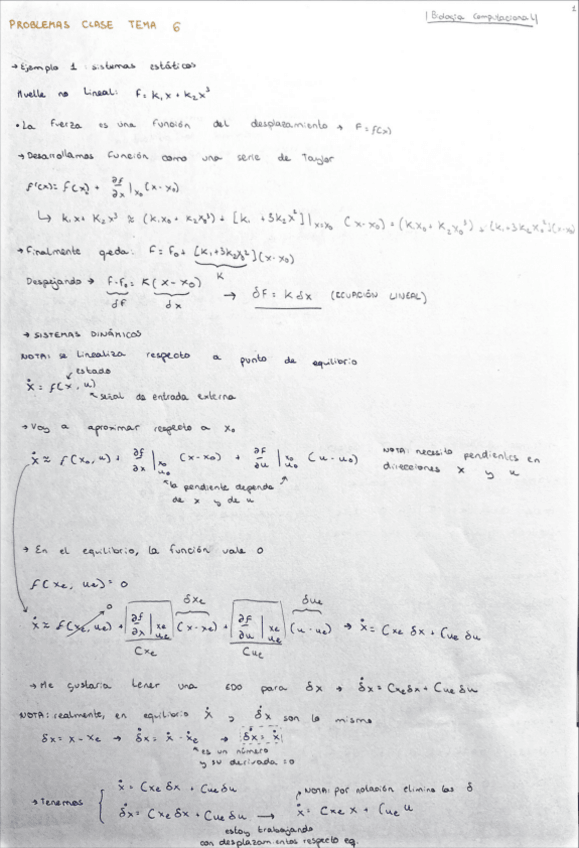 1
| Biología Computacional |
PROBLEMAS CLASE TEMA 6
→ Ejemplo 1 : sistemas estáticos
Muelle no lineal: F = k₁x + k₂x³
• La fuerza es una función del desplazamiento → F = f(x)
→ Desarrollamos función como una serie de Taylor
f'(x) = f(x₀) + ∂f/∂x |x₀ (x-x₀)
↳ k₁x + k₂x³ ≈ (k₁x₀ + k₂x₀³) + [k₁ + 3k₂x²]|x=x₀ (x-x₀) = (k₁x₀ + k₂x₀³) + [k₁+3k₂x₀²](x-x₀)
→ Finalmente queda: F = F₀ + [k₁+3k₂x₀²](x-x₀)
K
Despejando → F-F₀ = K(x-x₀) → δF = K δx (ECUACIÓN LINEAL)
δF δx
→ SISTEMAS DINÁMICOS
NOTA: se linealiza respecto a punto de equilibrio
estado
ẋ = f(x, u)
señal de entrada externa
→ Voy a aproximar respecto a x₀
ẋ ≈ f(x₀, u) + ∂f/∂x |x₀ u₀ (x-x₀) + ∂f/∂u |x₀ u₀ (u-u₀) NOTA: necesito pendientes en
direcciones x y u
la pendiente depende
de x y de u
→ En el equilibrio, la función vale 0
f(xe, ue) = 0
0 δxe δue
ẋ ≈ f(xe, ue) + ∂f/∂x |xe ue (x-xe) + ∂f/∂u |xe ue (u-ue) → ẋ = Cxe δx + Cue δu
Cxe Cue
→ Me gustaría tener una EDO para δx → δẋ = Cxe δx + Cue δu
NOTA: realmente, en equilibrio ẋ y δẋ son lo mismo
δx = x - xe → δẋ = ẋ - ẋe → δẋ = ẋ
es un número
y su derivada = 0
→ Tenemos { ẋ = Cxe δx + Cue δu NOTA: por notación elimino las δ
δẋ = Cxe δx + Cue δu → ẋ = Cxe x + Cue u
estoy trabajando
con desplazamientos respecto eq.